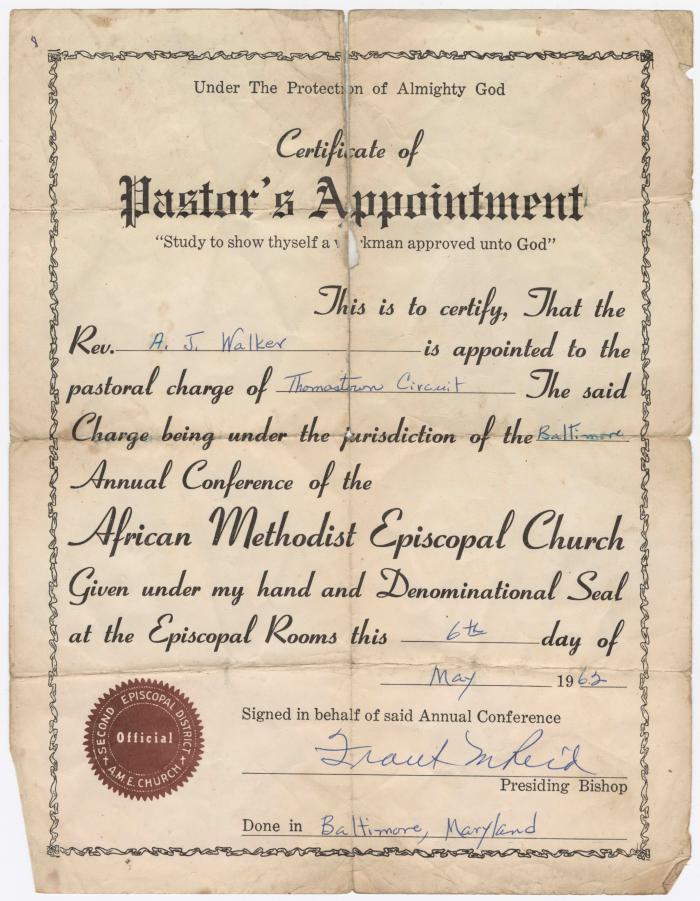 Under The Protection of Almighty God
Certificate of
Pastor's Appointment
"Study to show thyself a w rkman approved unto God"
This is to certify, That the
Rev. A. J. Walker is appointed to the
pastoral charge of Thomastown Circuit The said
Charge being under the jurisdiction of the Baltimore
Annual Conference of the
African Methodist Episcopal Church
Given under my hand and Denominational Seal
at the Episcopal Rooms this 6th day of
May 1962
SECOND EPISCOPAL DISTRICT
Official
A.M.E. CHURCH
Signed in behalf of said Annual Conference
Frank M Reid
Presiding Bishop
Done in Baltimore, Maryland